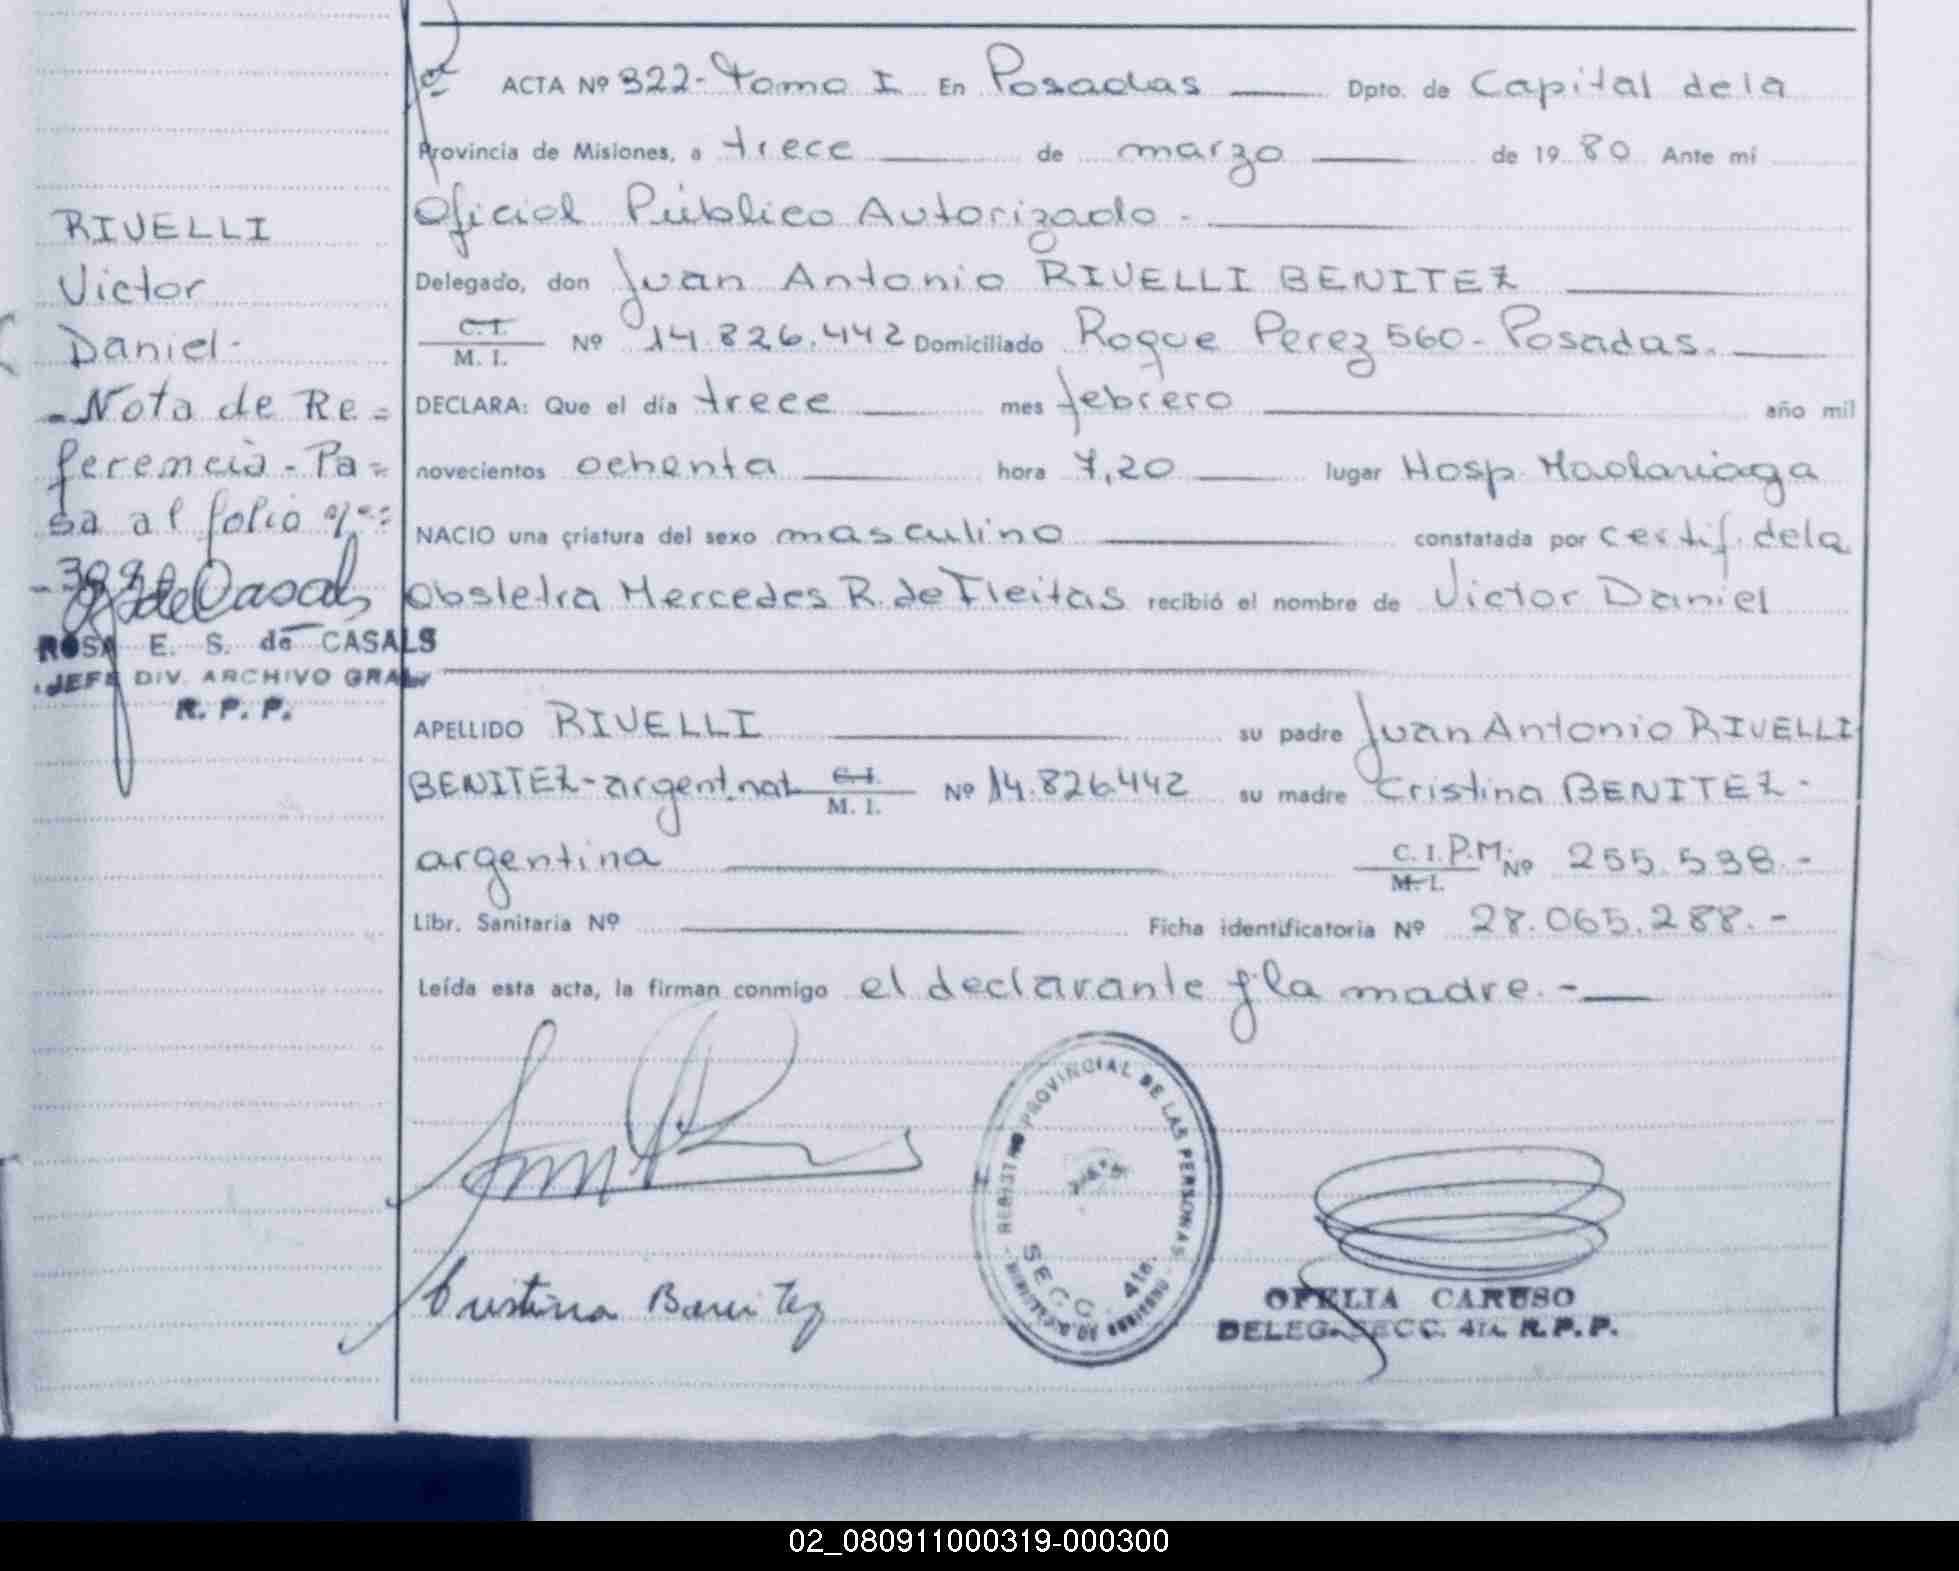 ACTA Nº 322- Tomo I En Posadas Dpto. de Capital de la
Provincia de Misiones, a trece de marzo de 19 80 Ante mí
Oficial Público Autorizado -
Delegado, don Juan Antonio RIVELLI BENITEZ
C.I. M. I. Nº 14.826.442 Domiciliado Roque Perez 560- Posadas.
DECLARA: Que el día trece mes febrero año mil
novecientos ochenta hora 7,20 lugar Hosp. Madariaga
NACIO una criatura del sexo masculino constatada por certif. de la
Obstetra Mercedes R. de Fleitas recibió el nombre de Victor Daniel
APELLIDO RIVELLI su padre Juan Antonio RIVELLI
BENITEZ-argent.nat C.I. M. I. Nº 14.826.442 su madre Cristina BENITEZ-
argentina C. I. P.M. M. I. Nº 255.538.-
Libr. Sanitaria Nº Ficha identificatoria Nº 28.065.288.-
Leída esta acta, la firman conmigo el declarante y la madre.-
RIVELLI
Victor
Daniel-
-Nota de Re=
ferencia-Pa=
sa al folio
ROSA E. S. de CASALS
JEFE DIV. ARCHIVO GRAL.
R. P. P.
Cristina Benitez
REGISTRO PROVINCIAL DE LAS PERSONAS
SECC. 4ta.
MINISTERIO DE GOBIERNO
OFELIA CARUSO
DELEG. SECC. 4ta. R.P.P.
02_080911000319-000300